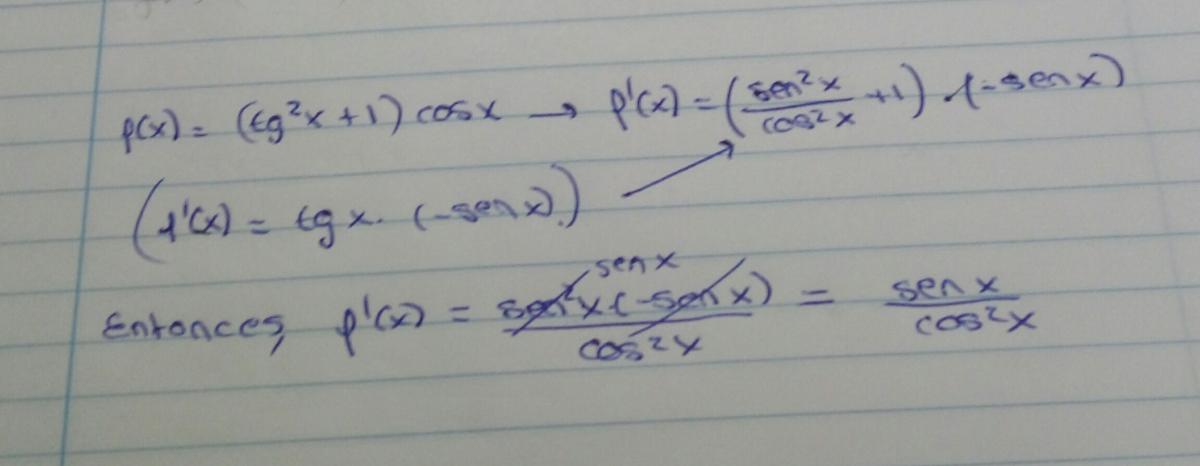 p(x) = (tg²x + 1) cosx → p'(x) = (sen²x/cos²x + 1) · (-senx)
(p'(x) = tg x · (-sen x))
Entonces, p'(x) = sen²x (-sen x)/cos²x senx = sen x/cos²x